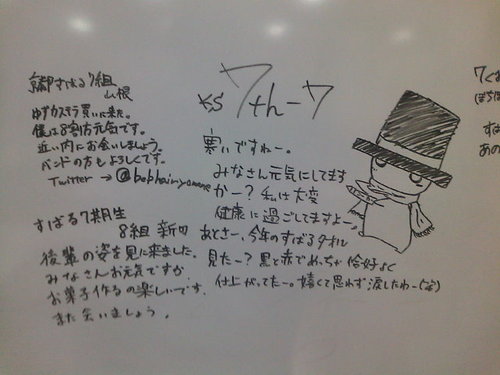 京都すばる7組
山根
ゆずカステラ買いに来た。
僕は8割方元気です。
近い内にお会いしましょう。
バンドの方もよろしくです。
Twitter → @bobhair-yamane
すばる7期生
8組 新
後輩の姿を見に来ました。
みなさんお元気ですか
お菓子作るの楽しいです。
また会いましょう。
KS 7th-7
寒いですねー。
みなさん元気にしてます
かー? 私は大変
健康に過ごしてますよー。
あとさー、今年のすばるタオル
見たー? 黒と赤でめっちゃ恰好よく
仕上がってたー。嬉しくて思わず涙したわー(泣)
7く
ぼちぼ
すば
あの